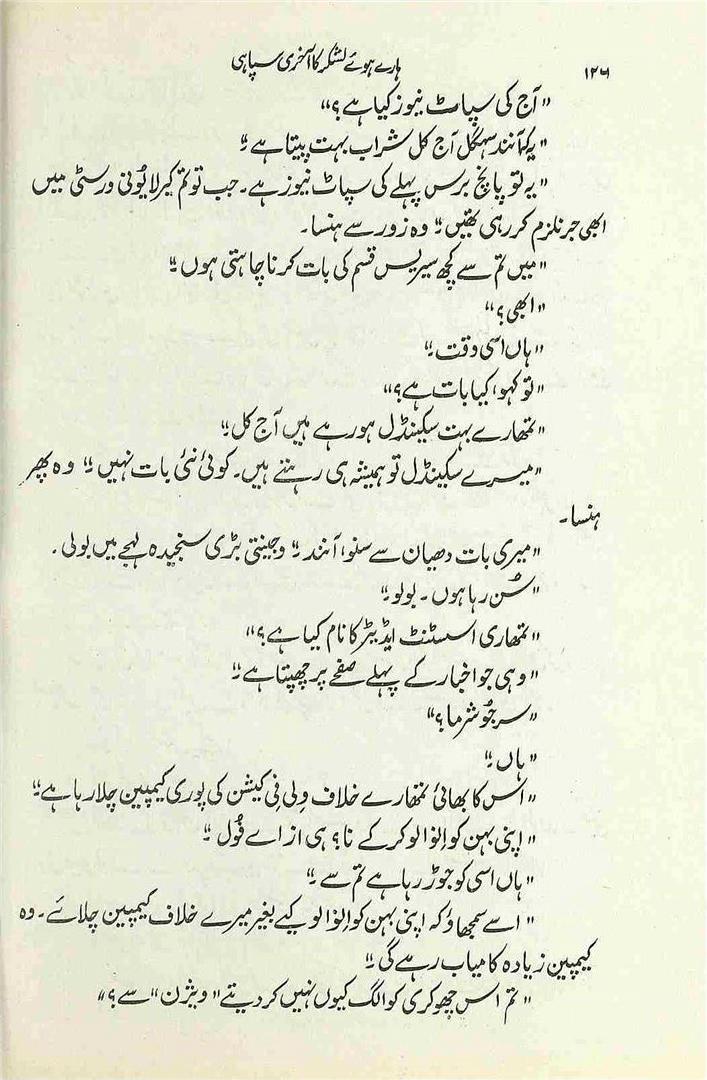 ۱۲۶
ہارے ہوئے لشکر کا آخری سپاہی
"آج کی سپاٹ نیوز کیا ہے؟"
"یہ کہ آنند سہگل آج کل شراب بہت پیتا ہے۔"
"یہ تو پانچ برس پہلے کی سپاٹ نیوز ہے۔ جب تو تم کیرلا یُونی ورسٹی میں
ابھی جرنلزم کر رہی تھیں۔" وہ زور سے ہنسا۔
"میں تم سے کچھ سیریس قسم کی بات کرنا چاہتی ہوں۔"
"ابھی؟"
"ہاں اسی وقت۔"
"تو کہو، کیا بات ہے؟"
"تمھارے بہت سکینڈل ہو رہے ہیں آج کل۔"
"میرے سکینڈل تو ہمیشہ ہی رہتے ہیں۔ کوئی نئی بات نہیں۔" وہ پھر
ہنسا۔
"میری بات دھیان سے سنو، آنند۔" وجینتی بڑی سنجیدہ لہجے میں بولی۔
"سُن رہا ہوں۔ بولو۔"
"تمھاری اسسٹنٹ ایڈیٹر کا نام کیا ہے؟"
"وہی جو اخبار کے پہلے صفحے پر چھپتا ہے۔"
"سرجُو شرما؟"
"ہاں۔"
"اس کا بھائی تمھارے خلاف وِلی فی کیشن کی پوری کیمپین چلا رہا ہے۔"
"اپنی بہن کو اِنوالو کر کے نا؟ ہی از اے فُول۔"
"ہاں اسی کو جوڑ رہا ہے تم سے۔"
"اسے سمجھاؤ کہ اپنی بہن کو اِنوالو کیے بغیر میرے خلاف کیمپین چلائے۔ وہ
کیمپین زیادہ کامیاب رہے گی۔"
"تم اس چھوکری کو الگ کیوں نہیں کر دیتے "ویژن" سے؟"